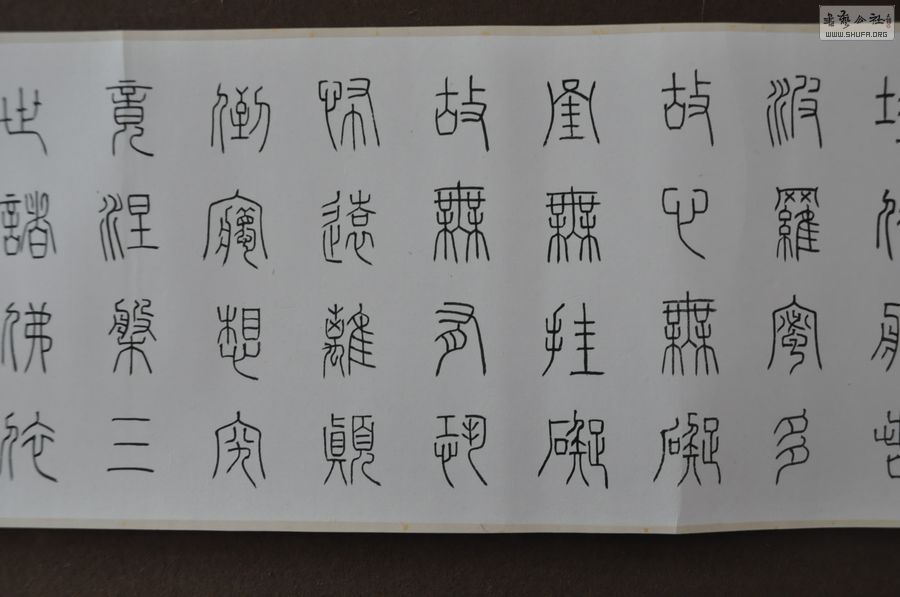 波羅蜜多
故心無礙
罣無挂礙
故無有恐
怖遠離顛
倒夢想究
竟涅槃三
世諸佛依
書藝公社
WWW.SHUFA.ORG